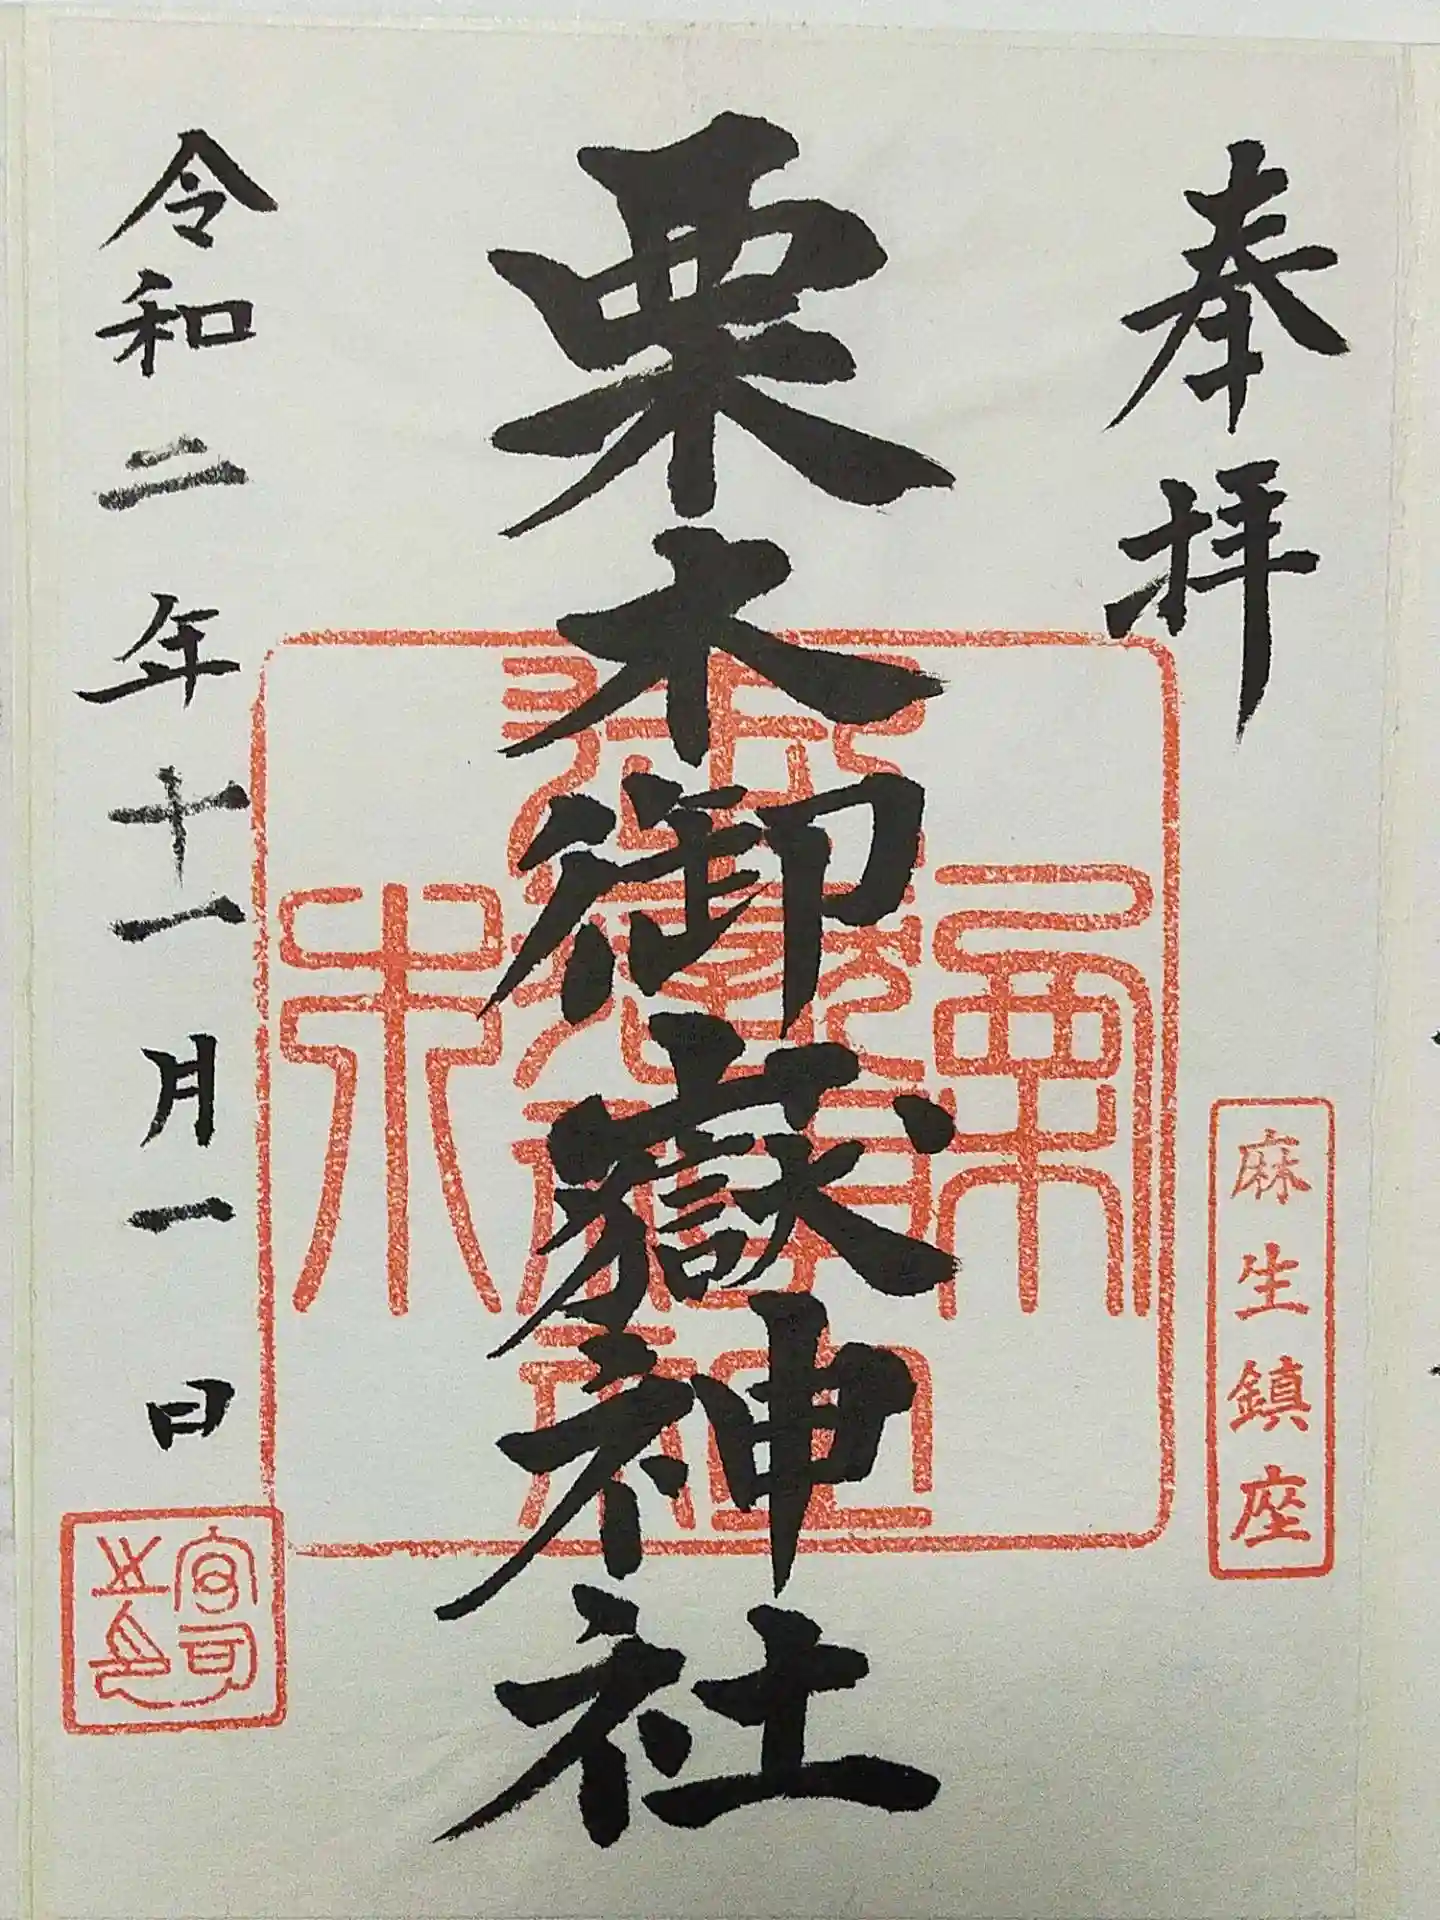 奉拝
麻生鎮座
栗木御嶽神社
栗木
御嶽神社
令和二年十一月一日
宮司之印